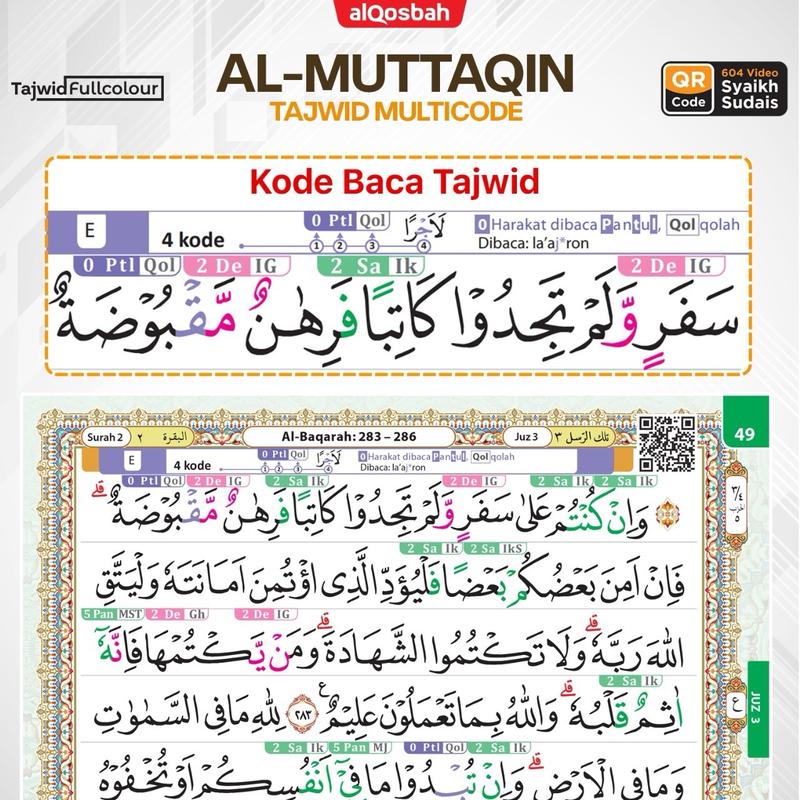 alQosbah
TajwidFullcolour
AL-MUTTAQIN
TAJWID MULTICODE
QR Code
604 Video
Syaikh
Sudais
Kode Baca Tajwid
E
4 kode
0 Ptl Qol
1 2 3 4
لَاَجْرًا
0 Harakat dibaca Pantul, Qol qolah
Dibaca: la'aj*ron
0 Ptl Qol 2 De IG 2 Sa Ik 2 De IG
سَفَرٍ وَّلَمْ تَجِدُوْا كَاتِبًا فَرِهٰنٌ مَّقْبُوْضَةٌ
49
Surah 2 البقرة ٢
Al-Baqarah: 283 – 286
Juz 3 تلك الرّسل ٣
E
4 kode
0 Ptl Qol
لَاَجْرًا
0 Harakat dibaca Pantul, Qol qolah
Dibaca: la'aj*ron
0 Ptl Qol 2 De IG 2 Sa Ik 2 De IG 2 Sa Ik 2 Sa Ik
وَاِنْ كُنْتُمْ عَلٰى سَفَرٍ وَّلَمْ تَجِدُوْا كَاتِبًا فَرِهٰنٌ مَّقْبُوْضَةٌ ۗ
2 Sa Ik 2 Sa IkS
فَاِنْ اَمِنَ بَعْضُكُمْ بَعْضًا فَلْيُؤَدِّ الَّذِى اؤْتُمِنَ اَمَانَتَهٗ وَلْيَتَّقِ
5 Pan MST 2 De Gh 2 De IG
اللّٰهَ رَبَّهٗ ۗ وَلَا تَكْتُمُوا الشَّهَادَةَ ۗ وَمَنْ يَّكْتُمْهَا فَاِنَّهٗٓ
2 Sa Ik
اٰثِمٌ قَلْبُهٗ ۗ وَاللّٰهُ بِمَا تَعْمَلُوْنَ عَلِيْمٌ ࣖ ٢٨٣ لِلّٰهِ مَا فِى السَّمٰوٰتِ
2 Sa Ik 5 Pan MJ 0 Ptl Qol 2 Sa Ik
وَمَا فِى الْاَرْضِ ۗ وَاِنْ تُبْدُوْا مَا فِيْٓ اَنْفُسِكُمْ اَوْ تُخْفُوْهُ
٣/٤
الحزب
٥
ع
JUZ 3